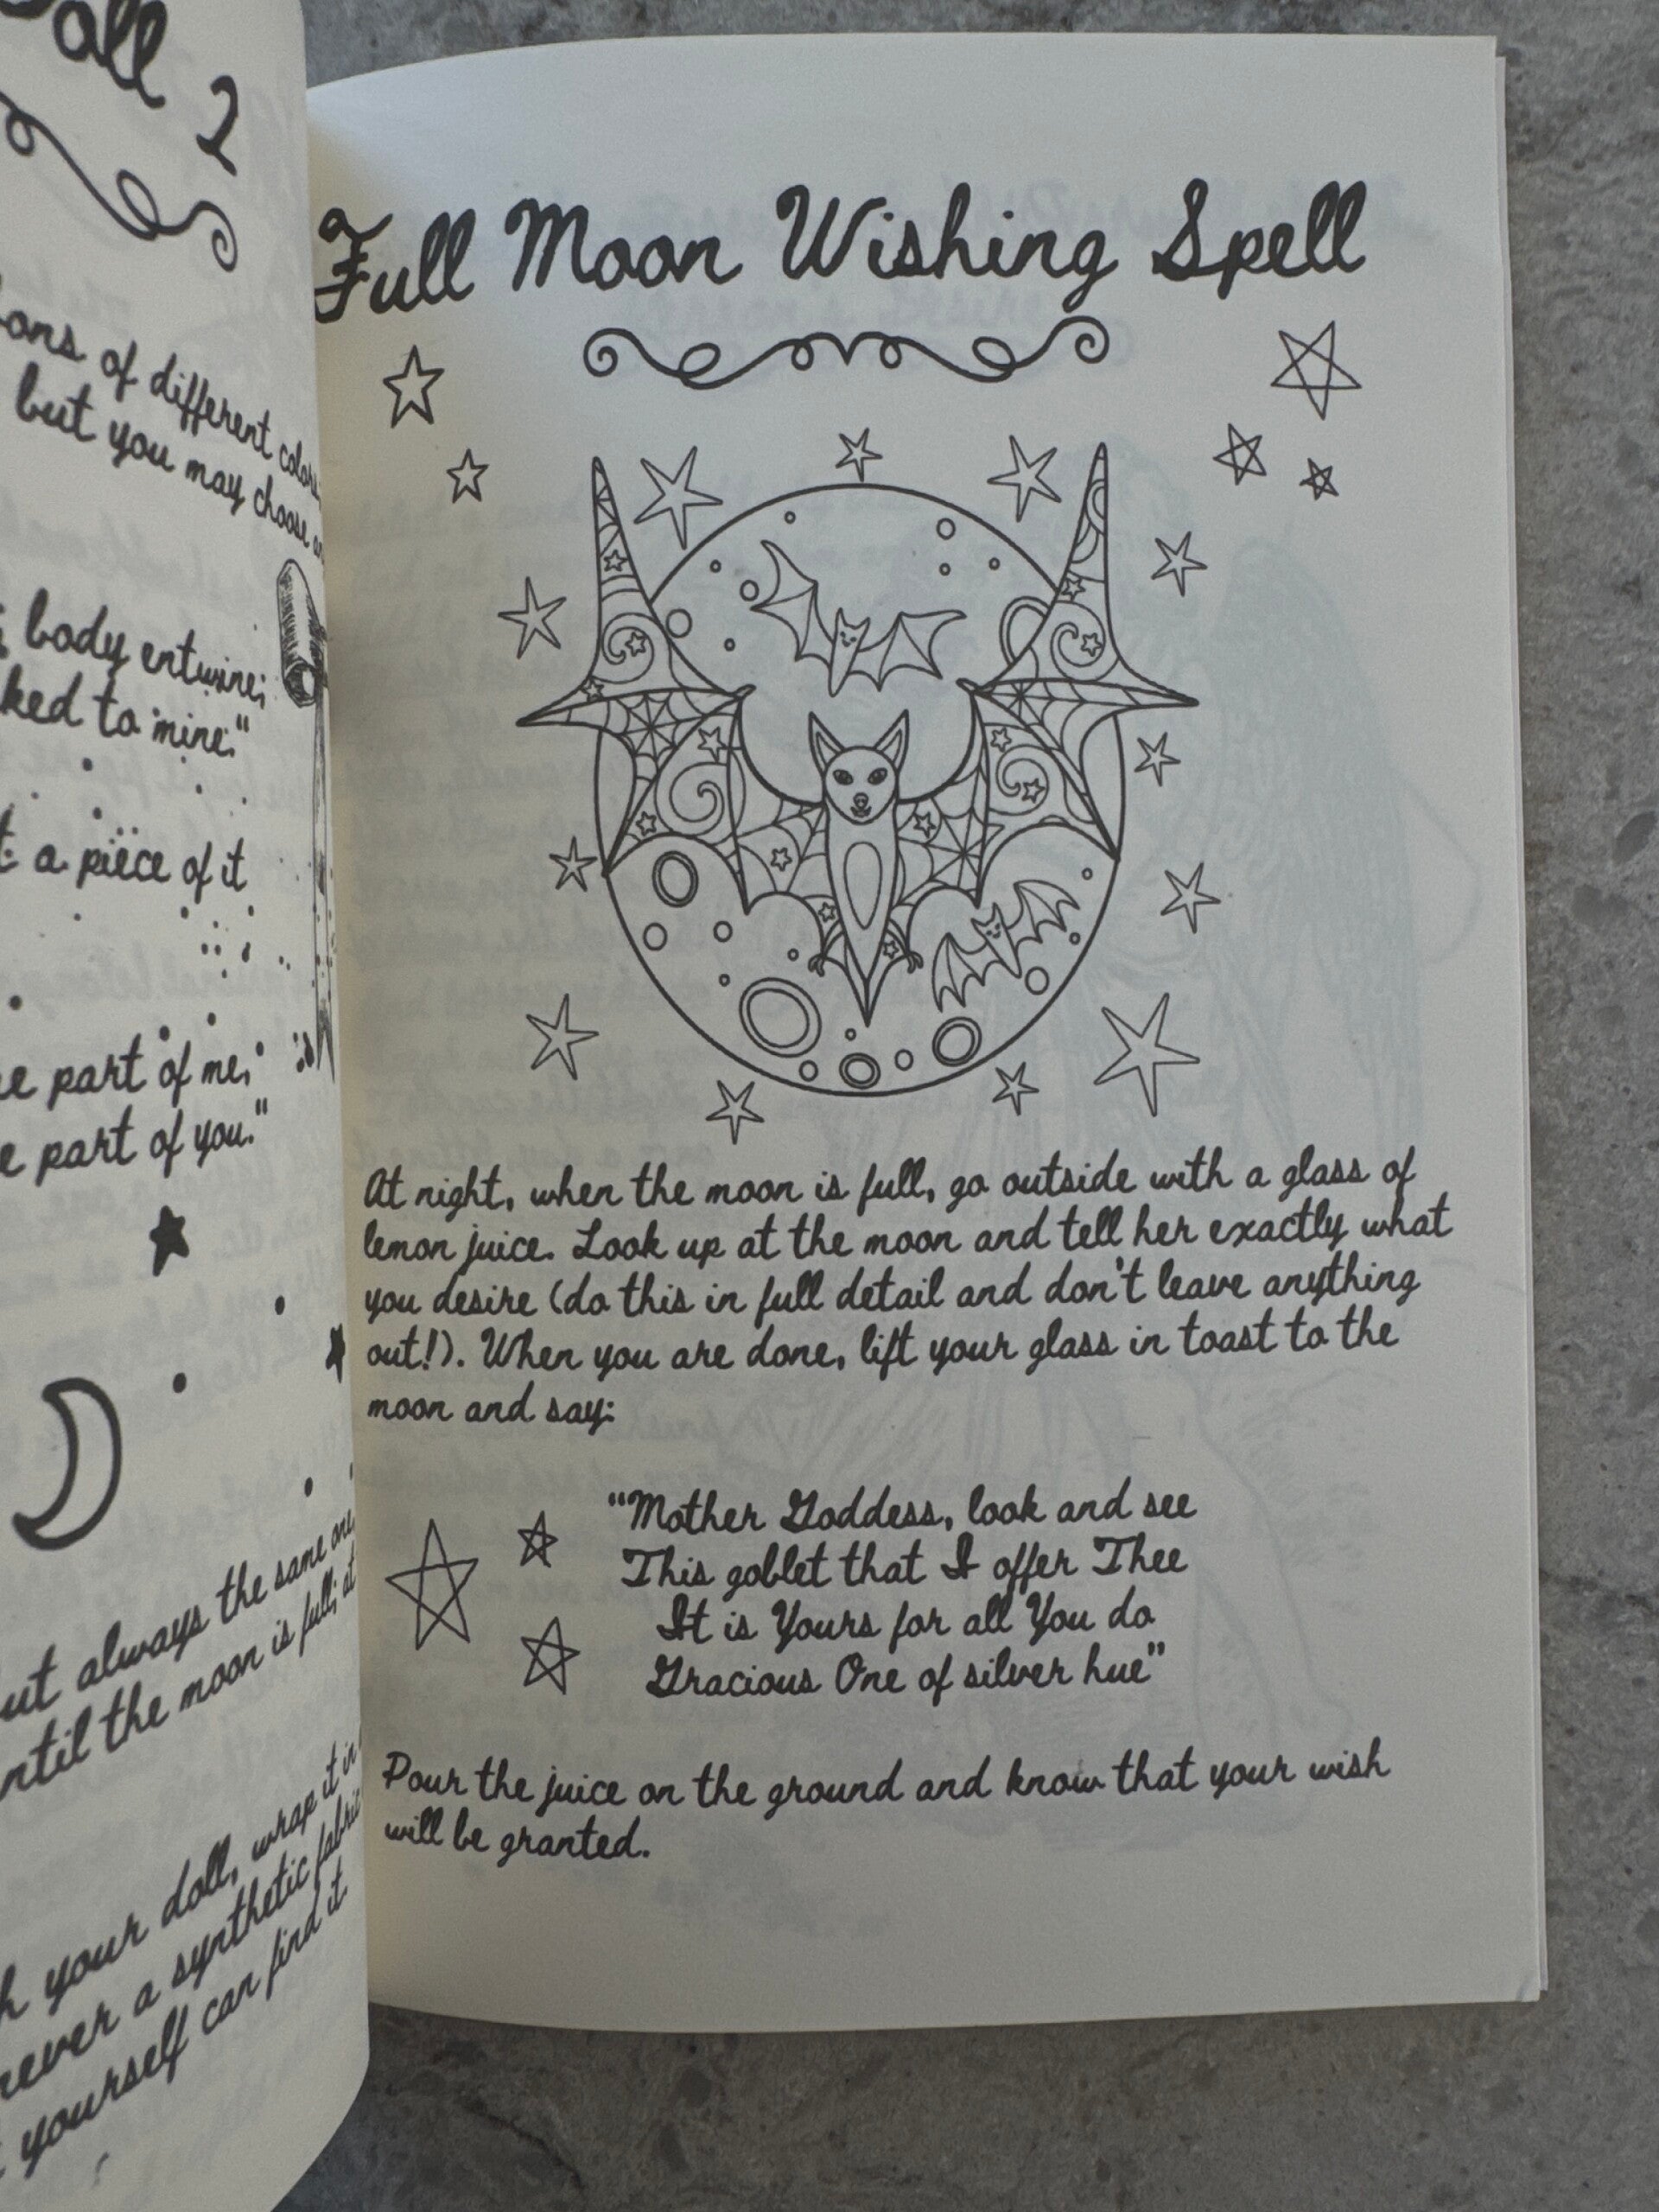 all
of different
but you may choose
body entwine;
to mine."
a piece of it
part of me,
part of you."
always the same
the moon is full; at
your doll, wrap it in
a synthetic fabric
yourself can find it.
Full Moon Wishing Spell
At night, when the moon is full, go outside with a glass of
lemon juice. Look up at the moon and tell her exactly what
you desire (do this in full detail and don't leave anything
out!). When you are done, lift your glass in toast to the
moon and say:
"Mother Goddess, look and see
This goblet that I offer Thee
It is Yours for all You do
Gracious One of silver hue"
Pour the juice on the ground and know that your wish
will be granted.